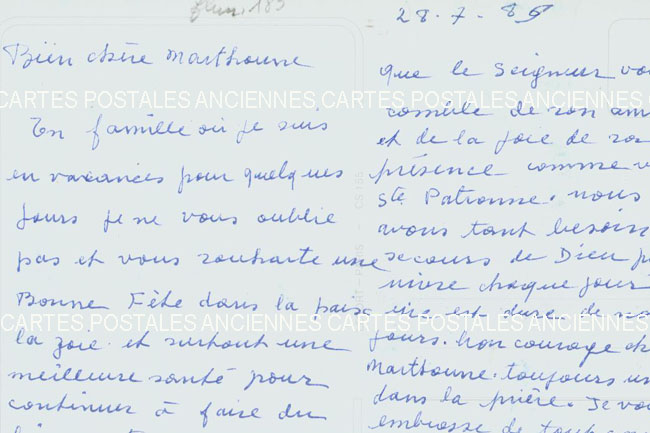 28.7.85
Bien chère Marthoune
En famille où je suis
en vacances pour quelques
jours je ne vous oublie
pas et vous souhaite une
Bonne Fête dans la paix
la joie et surtout une
meilleure santé pour
continuer à faire du
que le Seigneur vo
comble de son am
et de la joie de sa
présence comme v
Ste Patronne. nous
vous tant besoin
secours de Dieu p
vivre chaque jour
vie est dure de
jours. bon courage ch
Marthoune. toujours un
dans la prière. Je vo
embrasse de tout
CARTES POSTALES ANCIENNES
CARTES POSTALES ANCIENNES